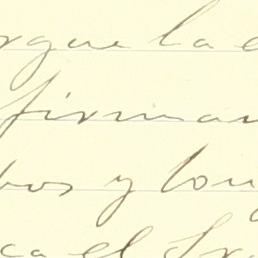 rgue la e
firman
bos y lou
ca el Sr